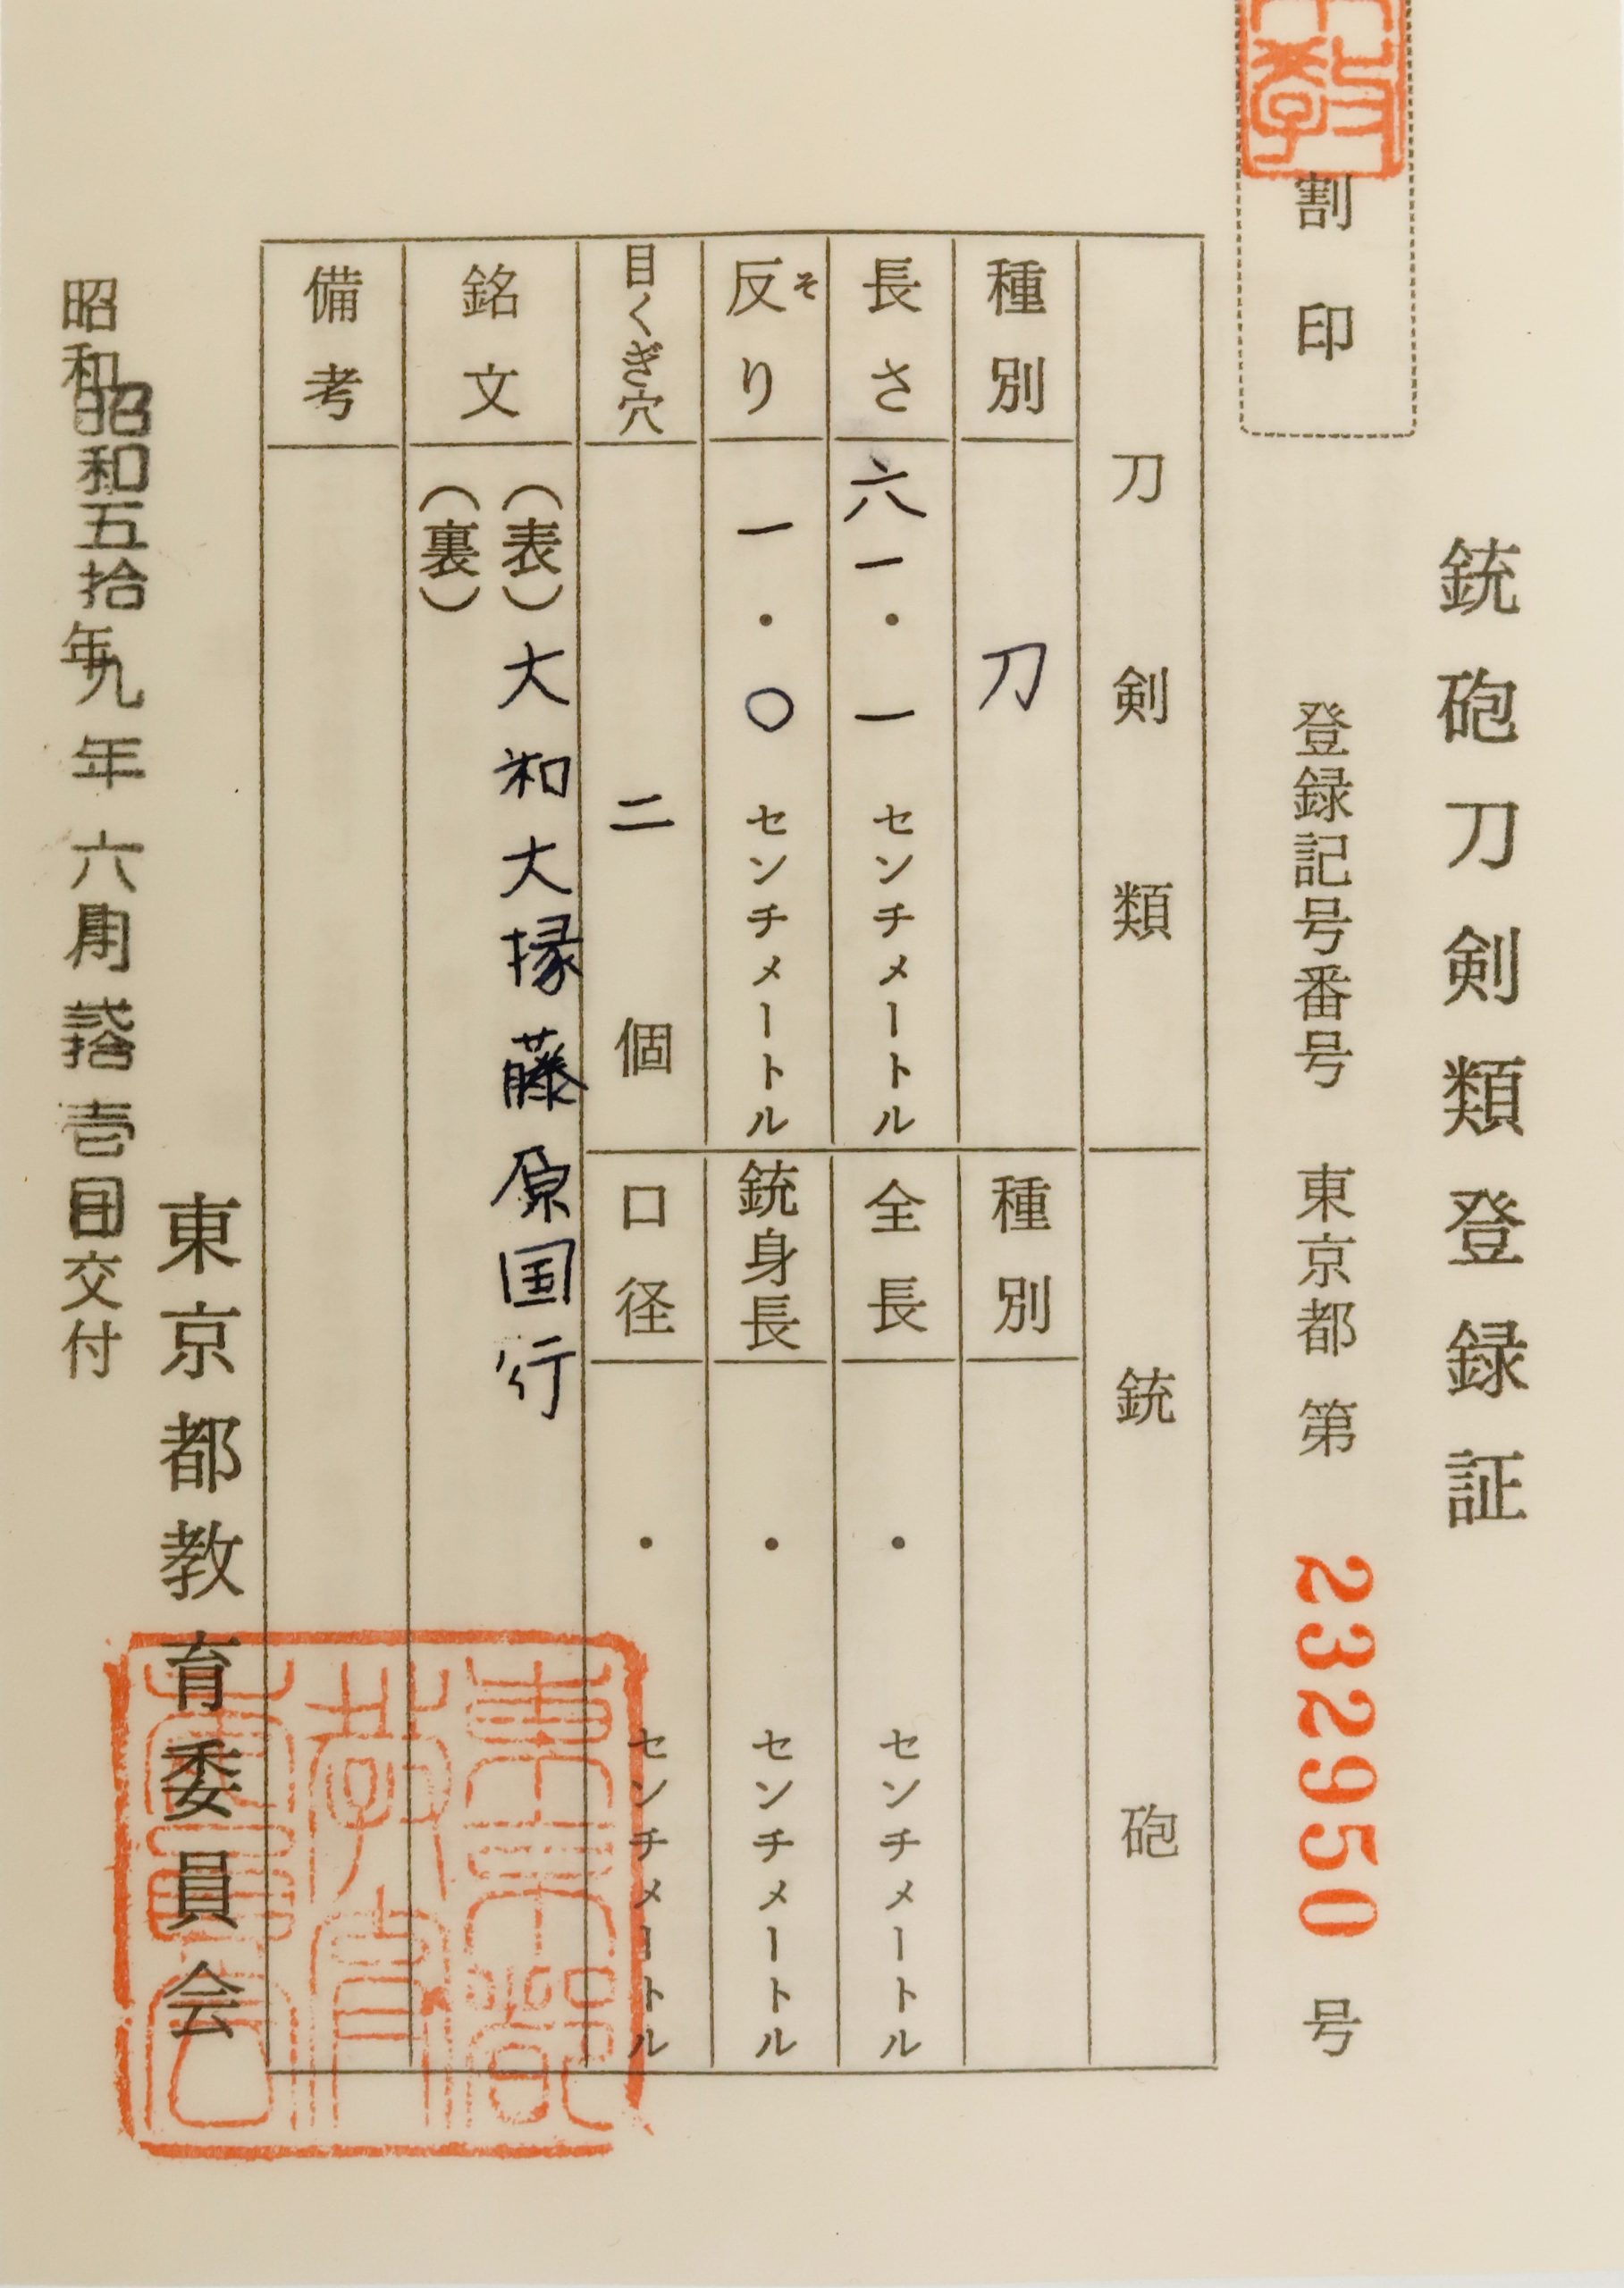 銃砲刀剣類登録証
割印
登録記号番号 東京都 第 232950 号
刀剣類
銃砲
種別 刀
種別
長さ 六一・一 センチメートル
全長 ・ センチメートル
反り 一・〇 センチメートル
そ
銃身長 ・ センチメートル
目くぎ穴 二 個
口径 ・ センチメートル
銘文 (表)大和大掾藤原国行
(裏)
備考
東京都教育委員会
昭和 年
昭和五拾九年 六月 壱日交付